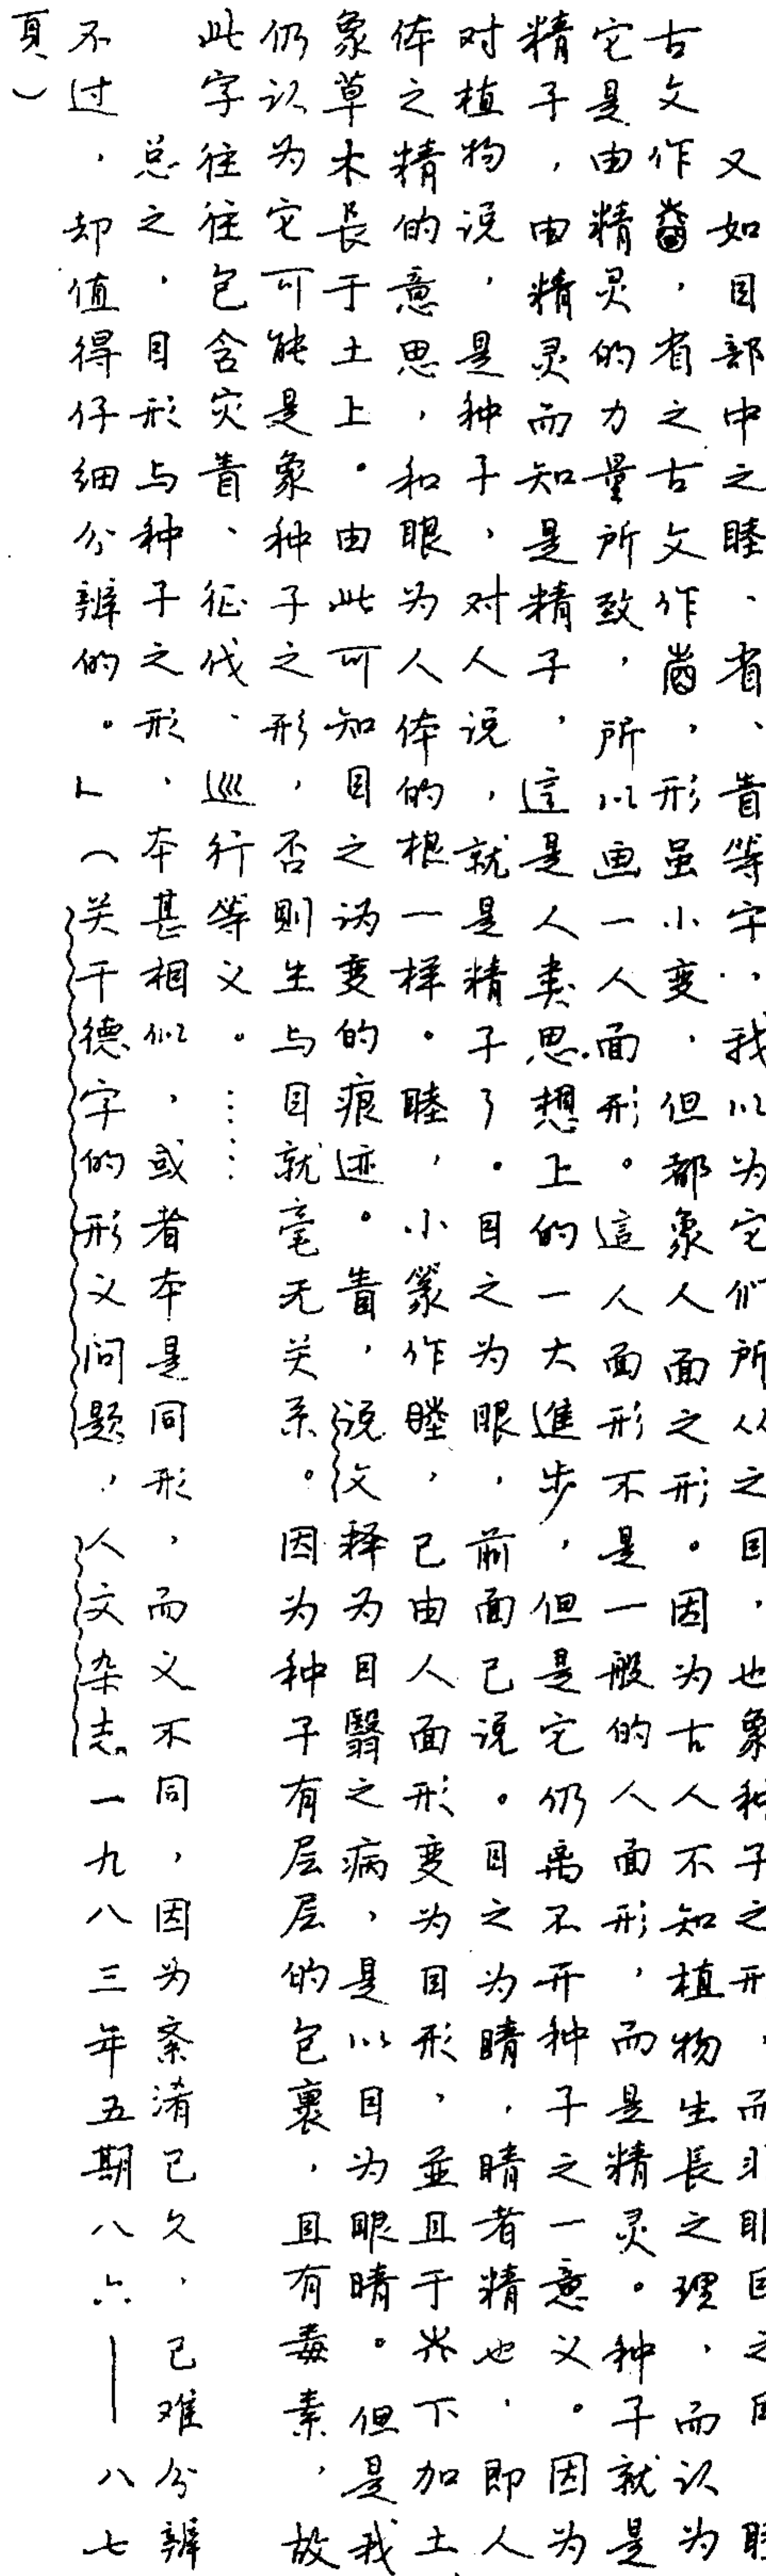 又如目部中之睦、省、眚等字，我以为它们所从之目，也象种子之形，而非眼目之目。睦
古文作，省之古文作，形虽小变，但都象人面之形。因为古人不知植物生長之理，而认为
它是由精灵的力量所致，所以画一人面形。這人面形不是一般的人面形，而是精灵。种子就是
精子，由精灵而知是精子，這是人类思想上的一大進步，但是它仍离不开种子之一意义。因为
对植物说，是种子，对人说，就是精子了。目之为眼，前面已说。目之为睛，睛者精也，即人
体之精的意思，和眼为人体的根一样。睦，小篆作睦，已由人面形变为目形，並且于下加土
象草木長于土上。由此可知目之讹变的痕迹。眚，说文释为目翳之病，是以目为眼睛。但是我
仍认为它可能是象种子之形，否则生与目就毫无关系。因为种子有层层的包裹，且有毒素，故
此字往往包含灾眚、征伐、巡行等义。……
总之，目形与种子之形，本甚相似，或者本是同形，而义不同，因为紊淆已久，已难分辨
不过，却值得仔细分辨的。」（关于德字的形义问题，人文杂志一九八三年五期八六——八七
頁）